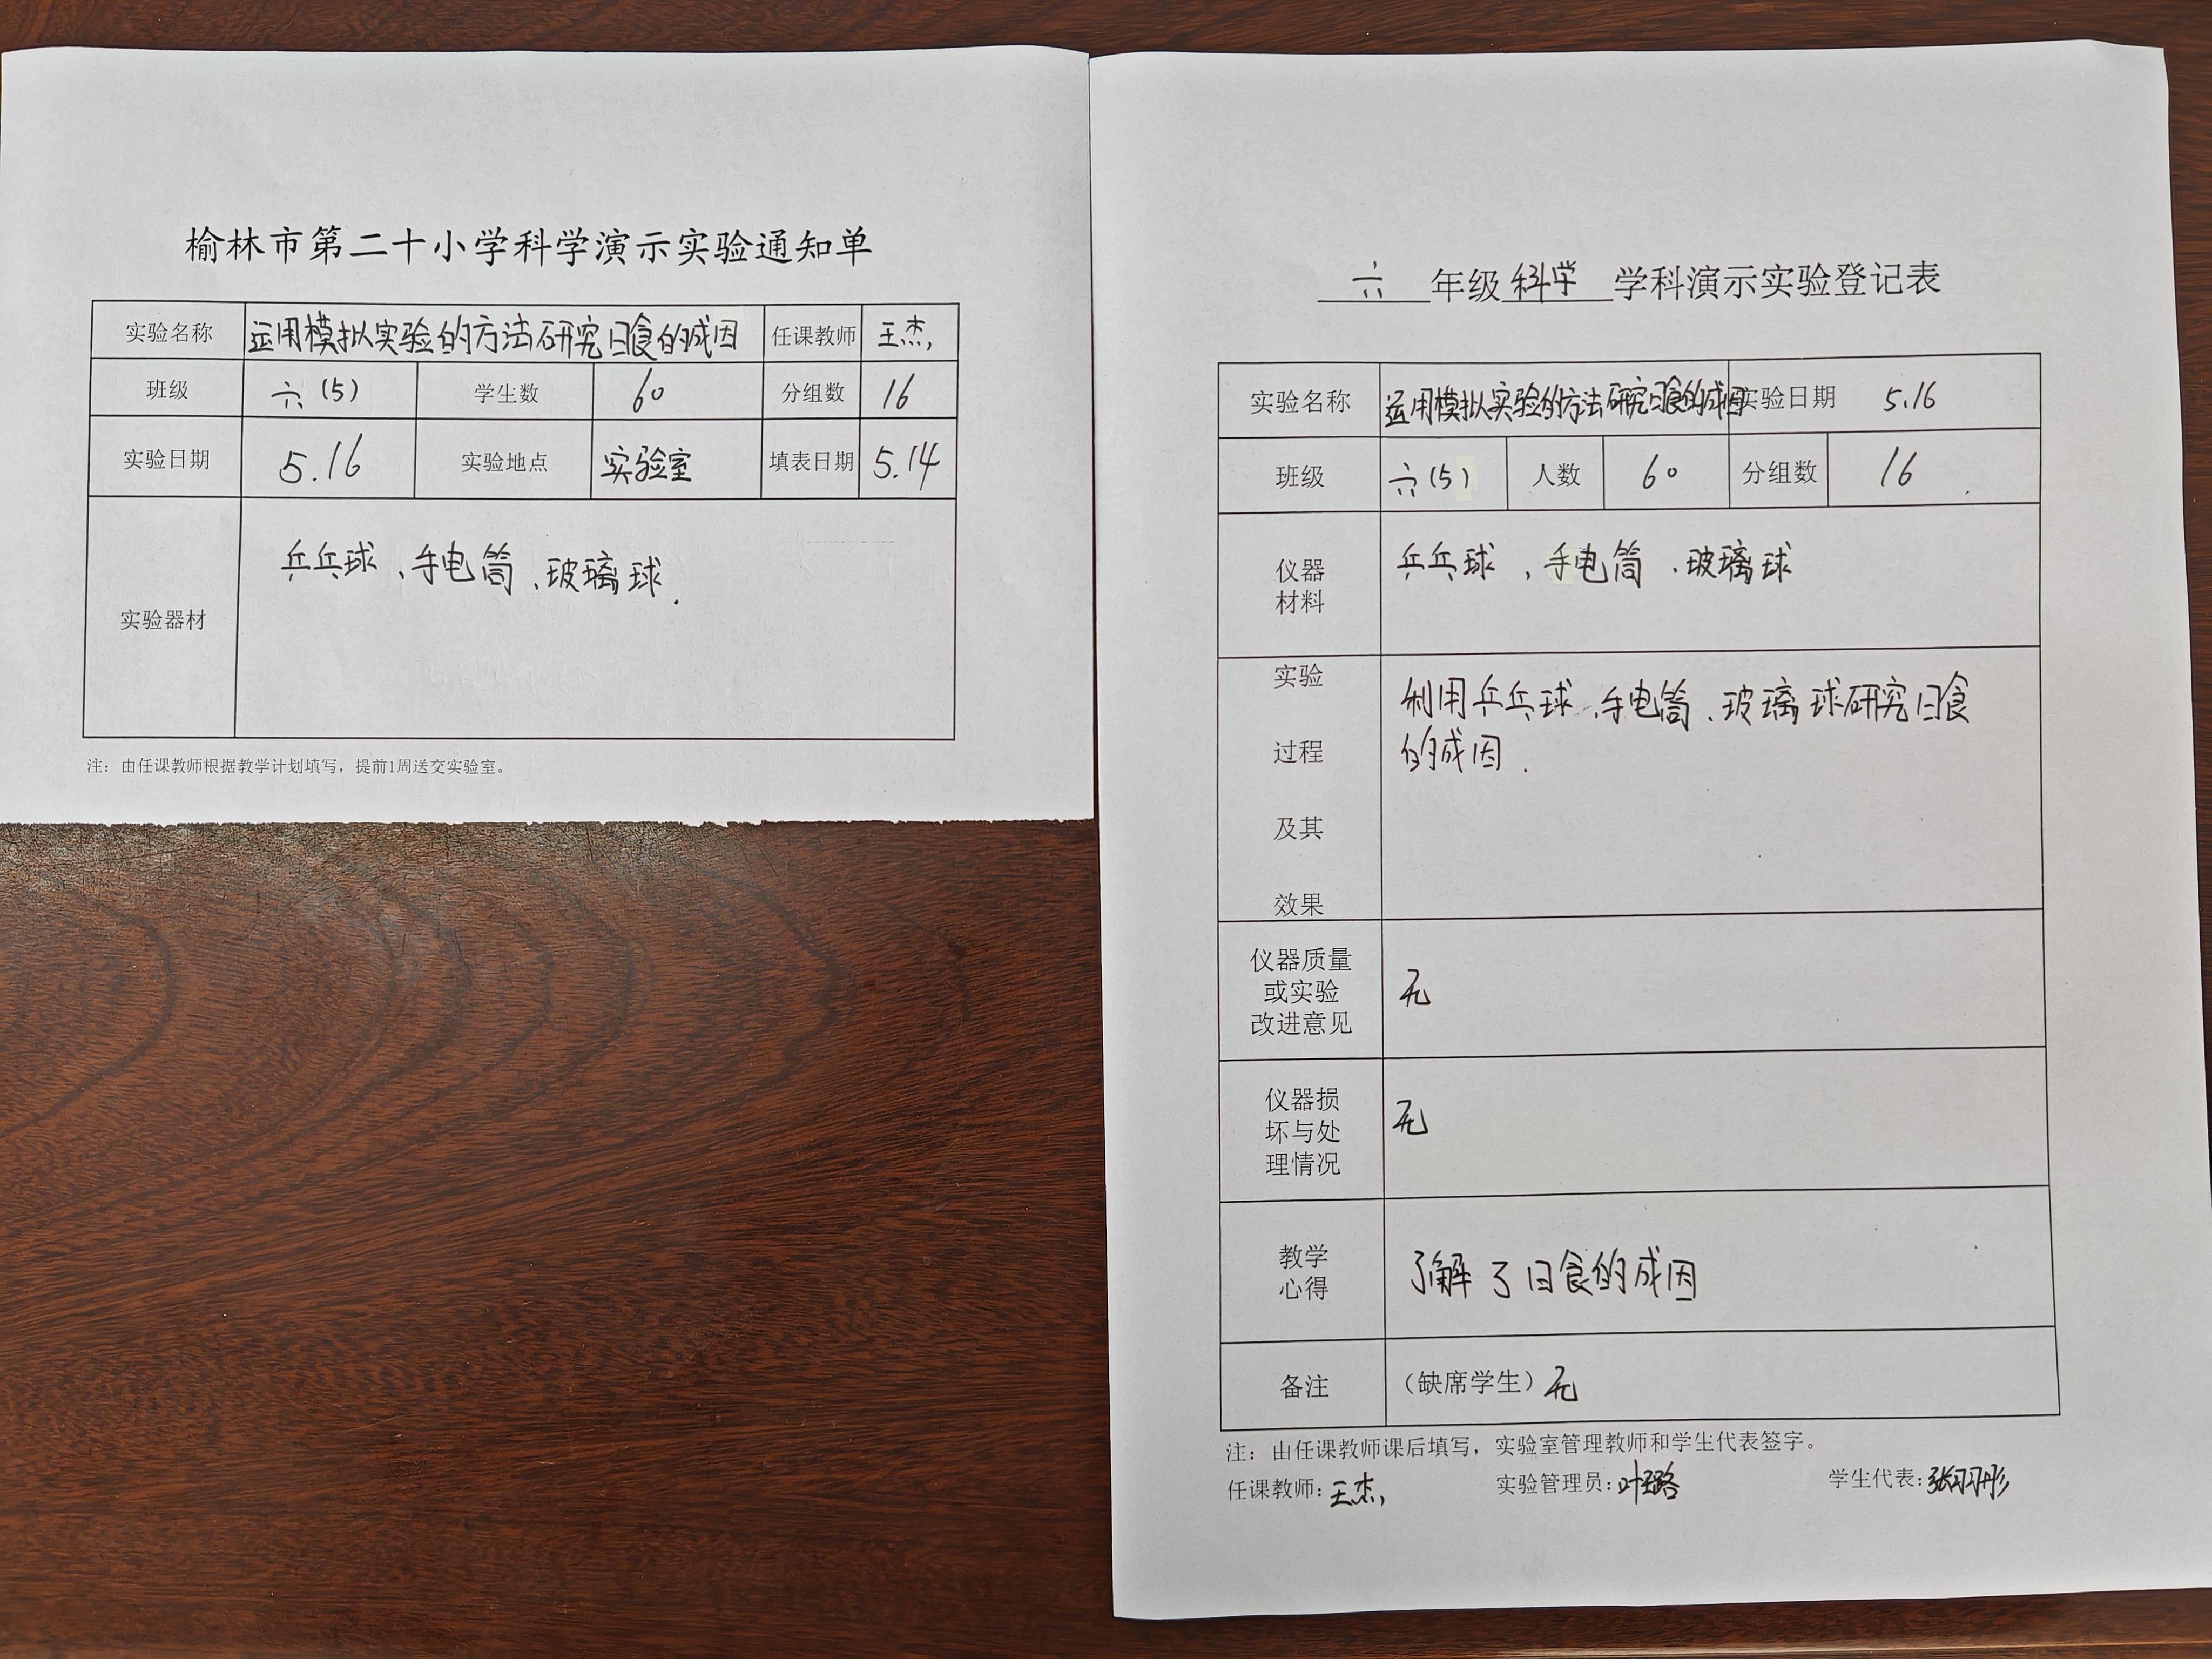 榆林市第二十小学科学演示实验通知单
实验名称 运用模拟实验的方法研究日食的成因 任课教师 王杰
班级 六(5) 学生数 60 分组数 16
实验日期 5.16 实验地点 实验室 填表日期 5.14
实验器材 乒乓球、手电筒、玻璃球.
注：由任课教师根据教学计划填写，提前1周送交实验室。
六 年级 科学 学科演示实验登记表
实验名称 运用模拟实验的方法研究日食的成因 实验日期 5.16
班级 六(5) 人数 60 分组数 16
仪器
材料
乒乓球、手电筒、玻璃球
实验
过程
及其
效果
利用乒乓球、手电筒、玻璃球研究日食
的成因.
仪器质量
或实验
改进意见
无
仪器损
坏与处
理情况
无
教学
心得
了解了日食的成因
备注 （缺席学生）无
注：由任课教师课后填写，实验室管理教师和学生代表签字。
任课教师：王杰 实验管理员： 学生代表：